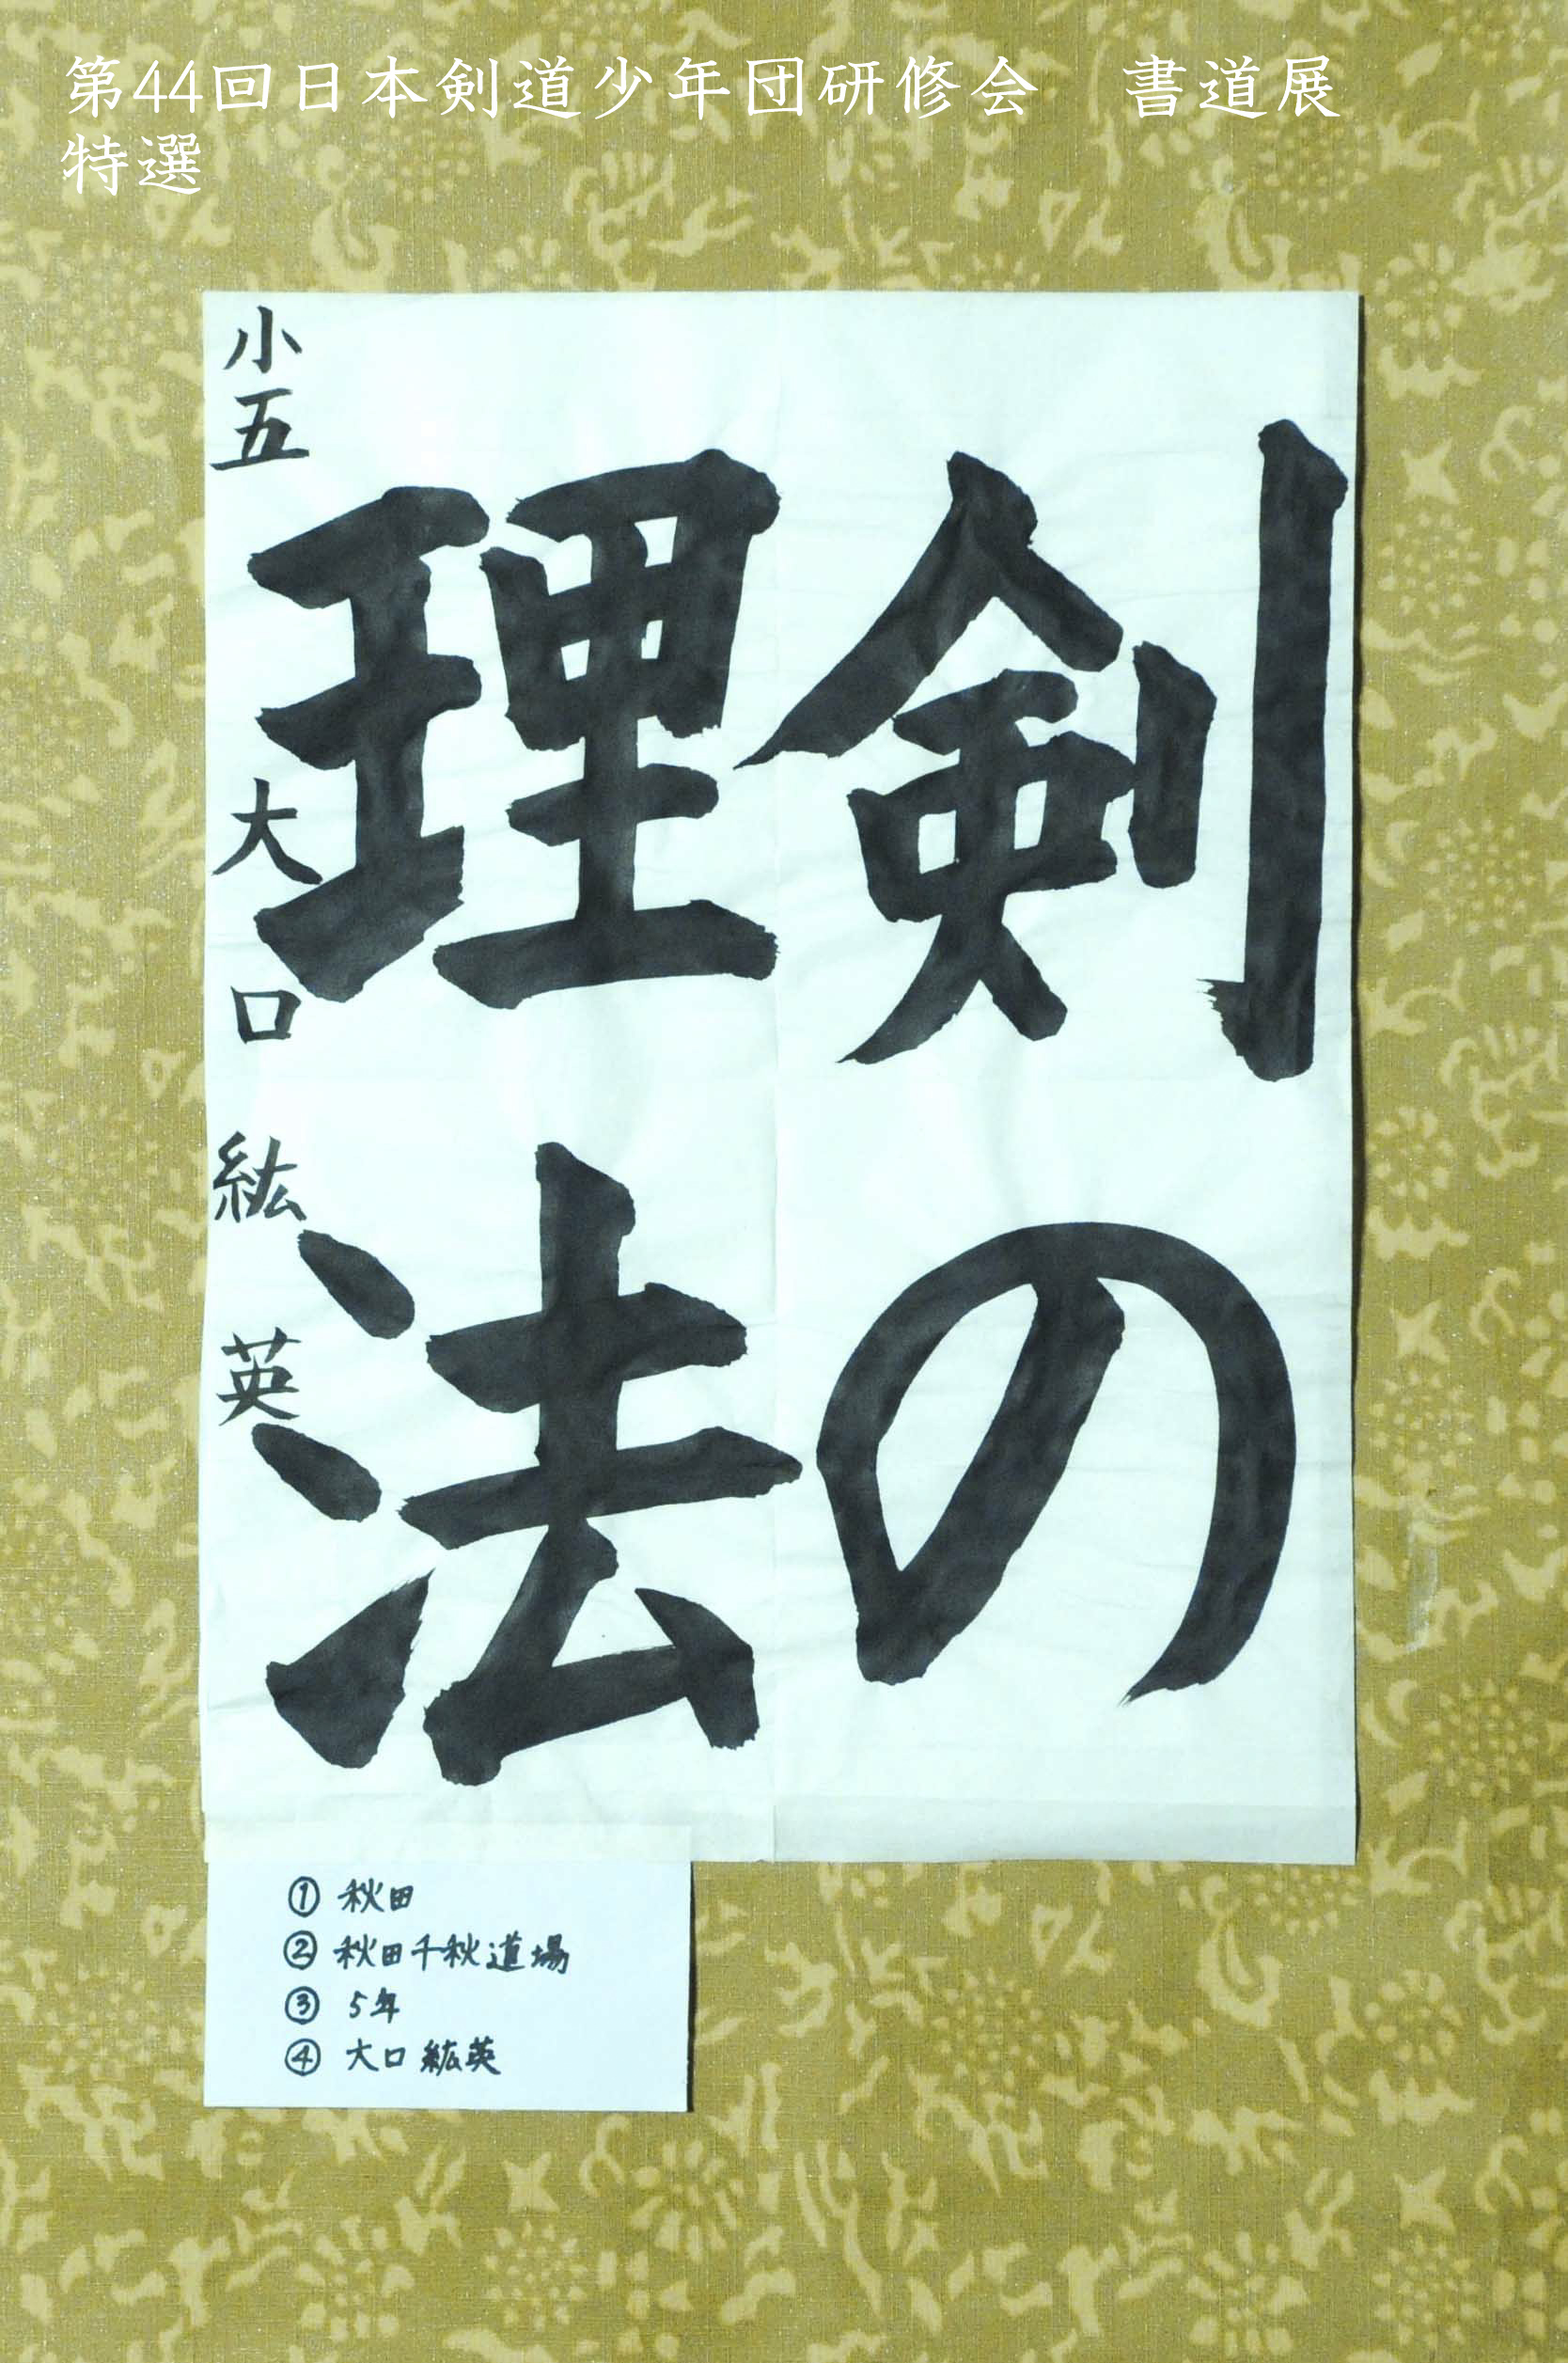 第44回日本剣道少年団研修会　書道展
特選
剣の
理法
小五 大口 紘英
① 秋田
② 秋田千秋道場
③ 5年
④ 大口 紘英